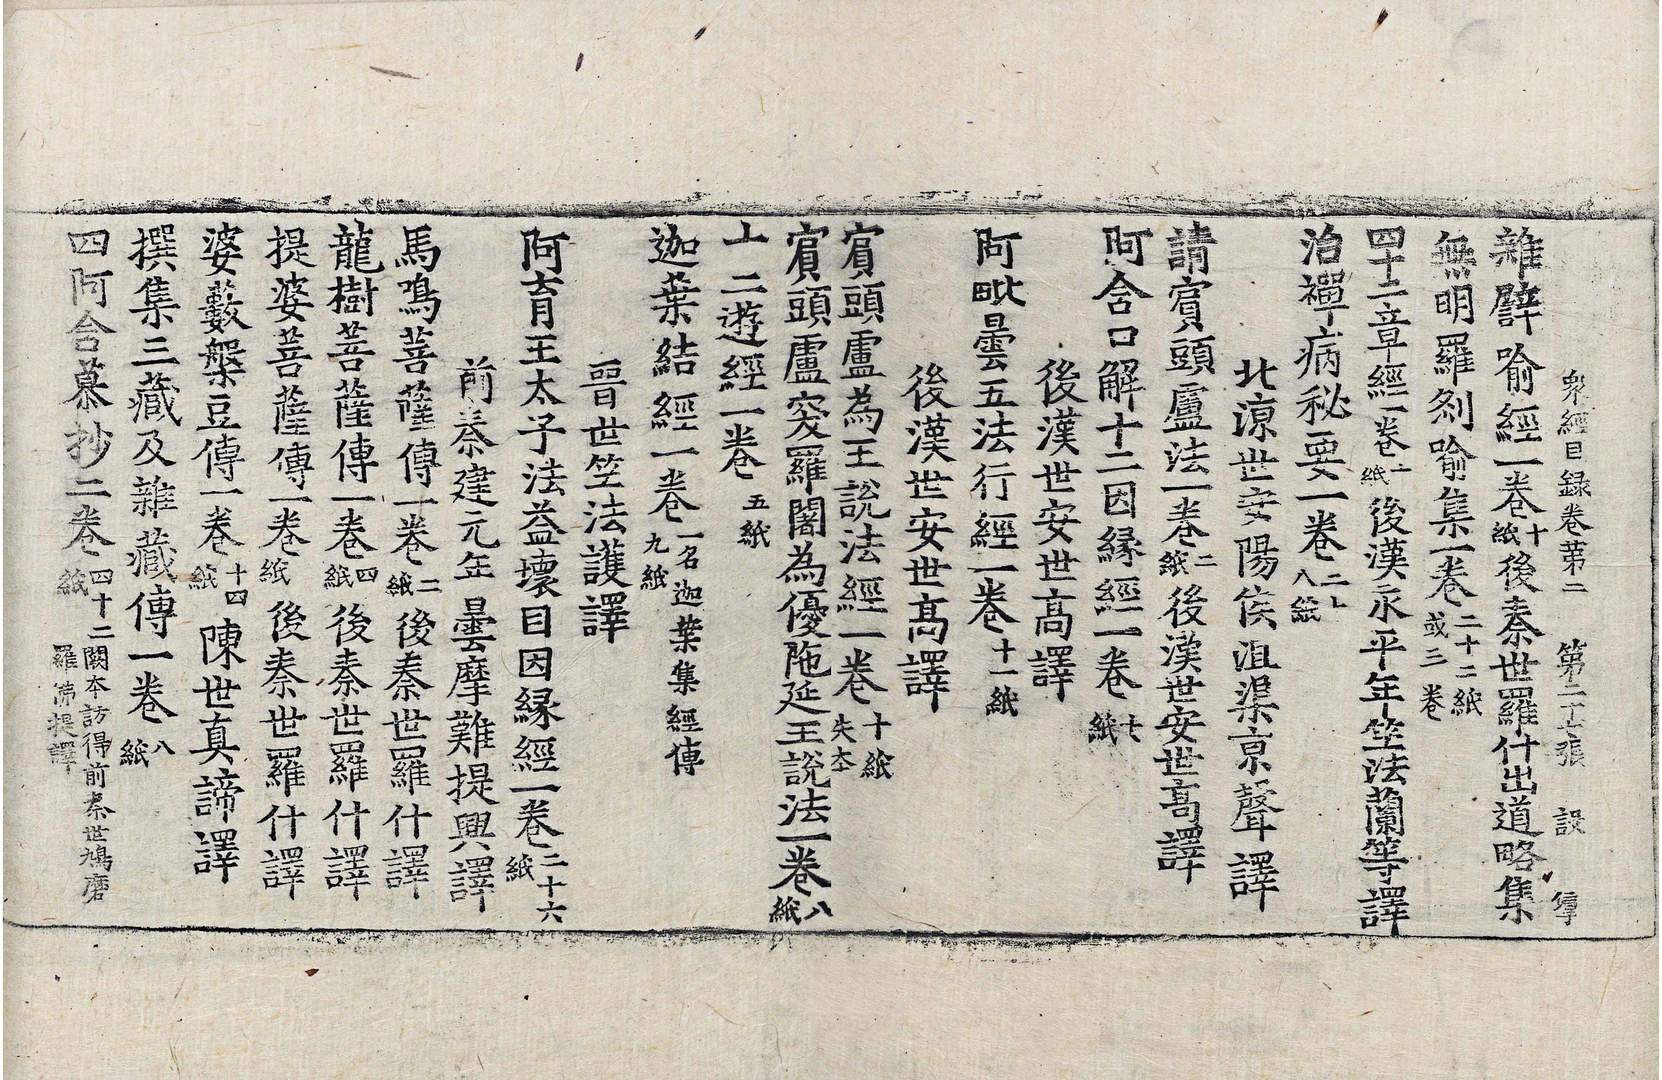 衆經目録卷第二 第二十七張 設
雜譬喻經一卷十紙後秦世羅什出道略集
無明羅刹喻集一卷二十二紙或三卷
四十二章經一卷十一紙後漢永平年竺法蘭等譯
治禪病秘要一卷二十八紙
北涼世安陽侯沮渠京聲譯
請賓頭盧法一卷二紙後漢世安世高譯
阿含口解十二因緣經一卷十七紙
後漢世安世高譯
阿毗曇五法行經一卷十一紙
後漢世安世高譯
賓頭盧為王說法經一卷十紙失本
賓頭盧突羅闍為優陁延王說法一卷八紙
十二遊經一卷五紙
迦葉結經一卷一名迦葉集經傳九紙
晉世竺法護譯
阿育王太子法益壞目因緣經一卷二十六紙
前秦建元年曇摩難提興譯
馬鳴菩薩傳一卷二紙後秦世羅什譯
龍樹菩薩傳一卷四紙後秦世羅什譯
提婆菩薩傳一卷紙後秦世羅什譯
婆藪槃豆傳一卷十四紙陳世真諦譯
撰集三藏及雜藏傳一卷八紙
四阿含慕抄二卷四十二紙闕本訪得前秦世鳩磨羅佛提譯